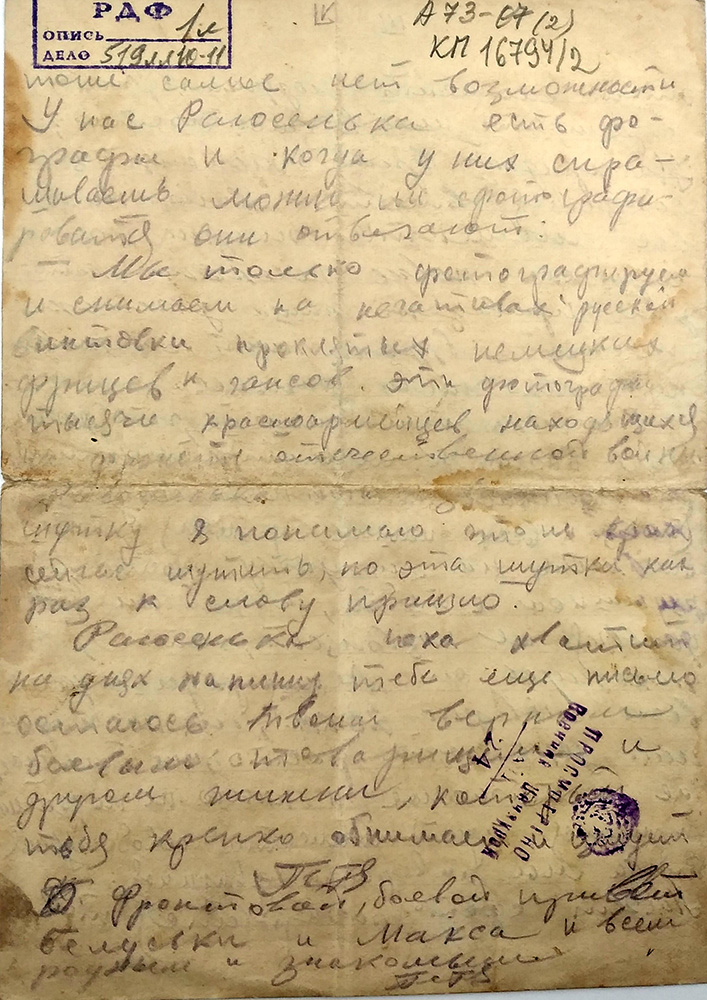 РДФ
опись 1л
дело 519лл10-11
К
А73-07(2)
КП 16794/2
нет возможности
У нас Раюсенька есть фо-
графы и когда у них спра-
шиваешь можно ли сфотографи-
роватся они отвечают:
— Мы только фотографируем
и снимаем на негативах русской
винтовки проклятых немецких
фрицев и гансов. Эти фотографы
тысячи красноармейцев находящихся
отечественной войны
Раюсенька
шутку я понимаю что не время
сейчас шутить, но эта шутка как
раз к слову пришло.
Раюсенька пока хватит
на днях напишу тебе еще письмо
остаюсь твоим верным
боевым товарищем и
другом жизни, который
тебя крепко обнимает и целует
Петя
Фронтовой, боевой привет
и Макса и всем
родным и знакомым
Петя
Просмотрено
Военной Цензурой
24